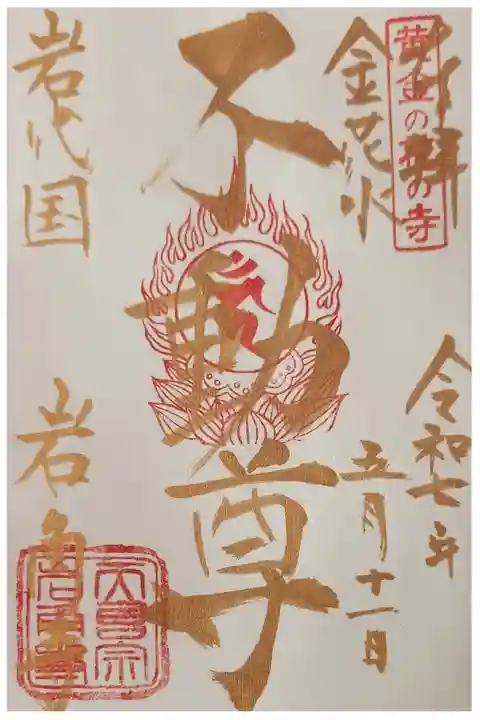 奉拝
黄金の花の寺
令和七年
金花水
五月十一日
不動尊
岩代国
岩角寺
天臺宗
岩角寺